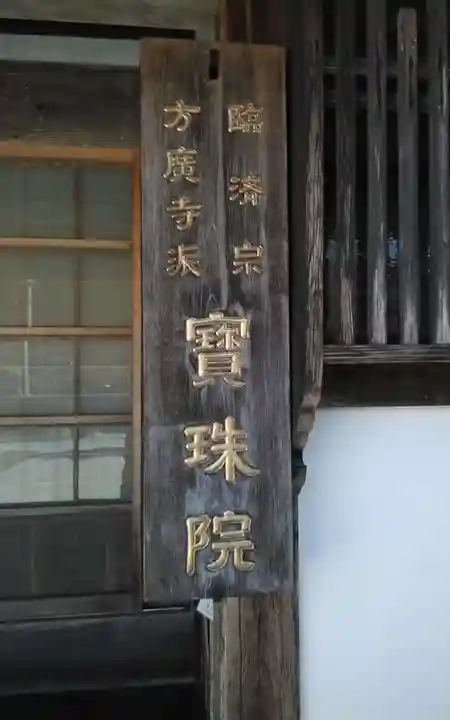 臨濟宗
方廣寺派
寶珠院